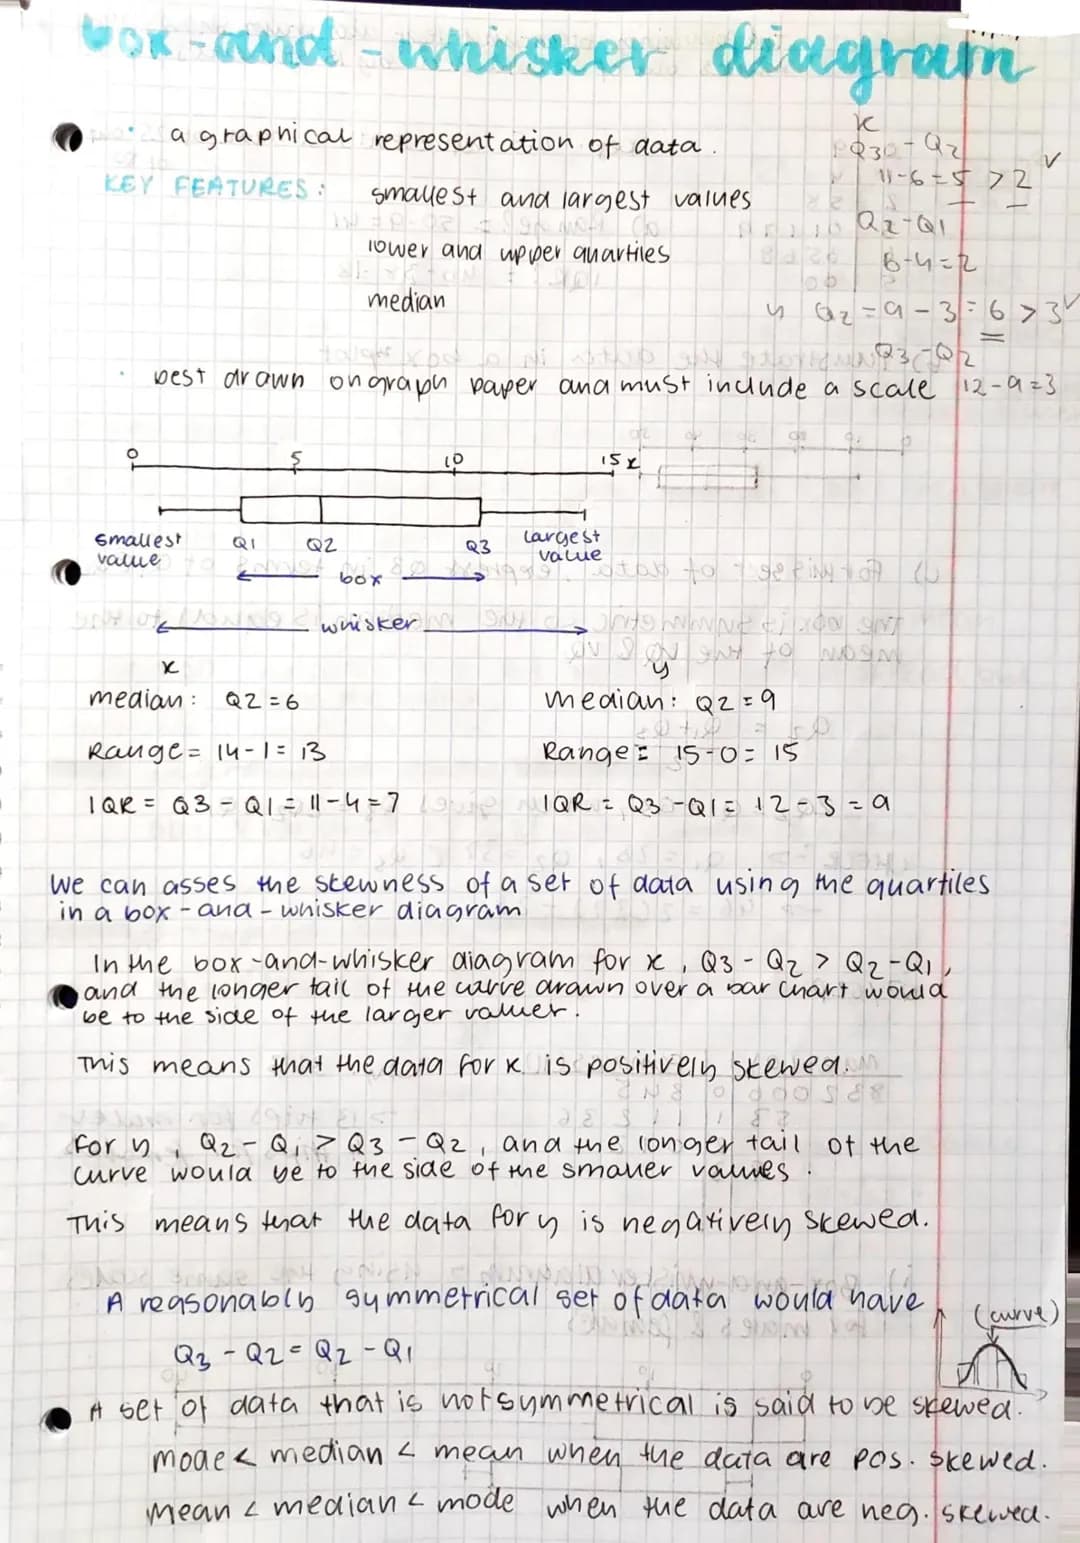 box-and-whisker diagram
• a graphical representation of data.
KEY FEATURES: smallest and largest values
lower and upper quartiles
median
x
Q3 - Q2
11-6=5 > 2 ✓
Q2-Q1
6-4=2
y Q2 = 9 - 3 = 6 > 3 ✓
Q3-Q2
12-9=3
• best drawn on graph paper and must include a scale
0 5 10 15 x
smallest value Q1 Q2 Q3 largest value
box
whisker
x
median: Q2 = 6
Range = 14-1 = 13
IQR = Q3 - Q1 = 11-4 = 7
y
median: Q2 = 9
Range = 15-0 = 15
IQR = Q3 - Q1 = 12-3 = 9
We can asses the skewness of a set of data using the quartiles
in a box-and-whisker diagram
In the box-and-whisker diagram for x, Q3 - Q2 > Q2-Q1,
and the longer tail of the curve drawn over a bar chart would
be to the side of the larger values.
This means that the data for x is positively skewed.
For y, Q2 - Q1 > Q3 - Q2, and the longer tail of the
curve would be to the side of the smaller values.
This means that the data for y is negatively skewed.
A reasonably symmetrical set of data would have
Q3 - Q2 = Q2 - Q1
(curve)
A set of data that is not symmetrical is said to be skewed.
mode < median < mean when the data are pos. skewed.
Mean < median < mode when the data are neg. skewed.